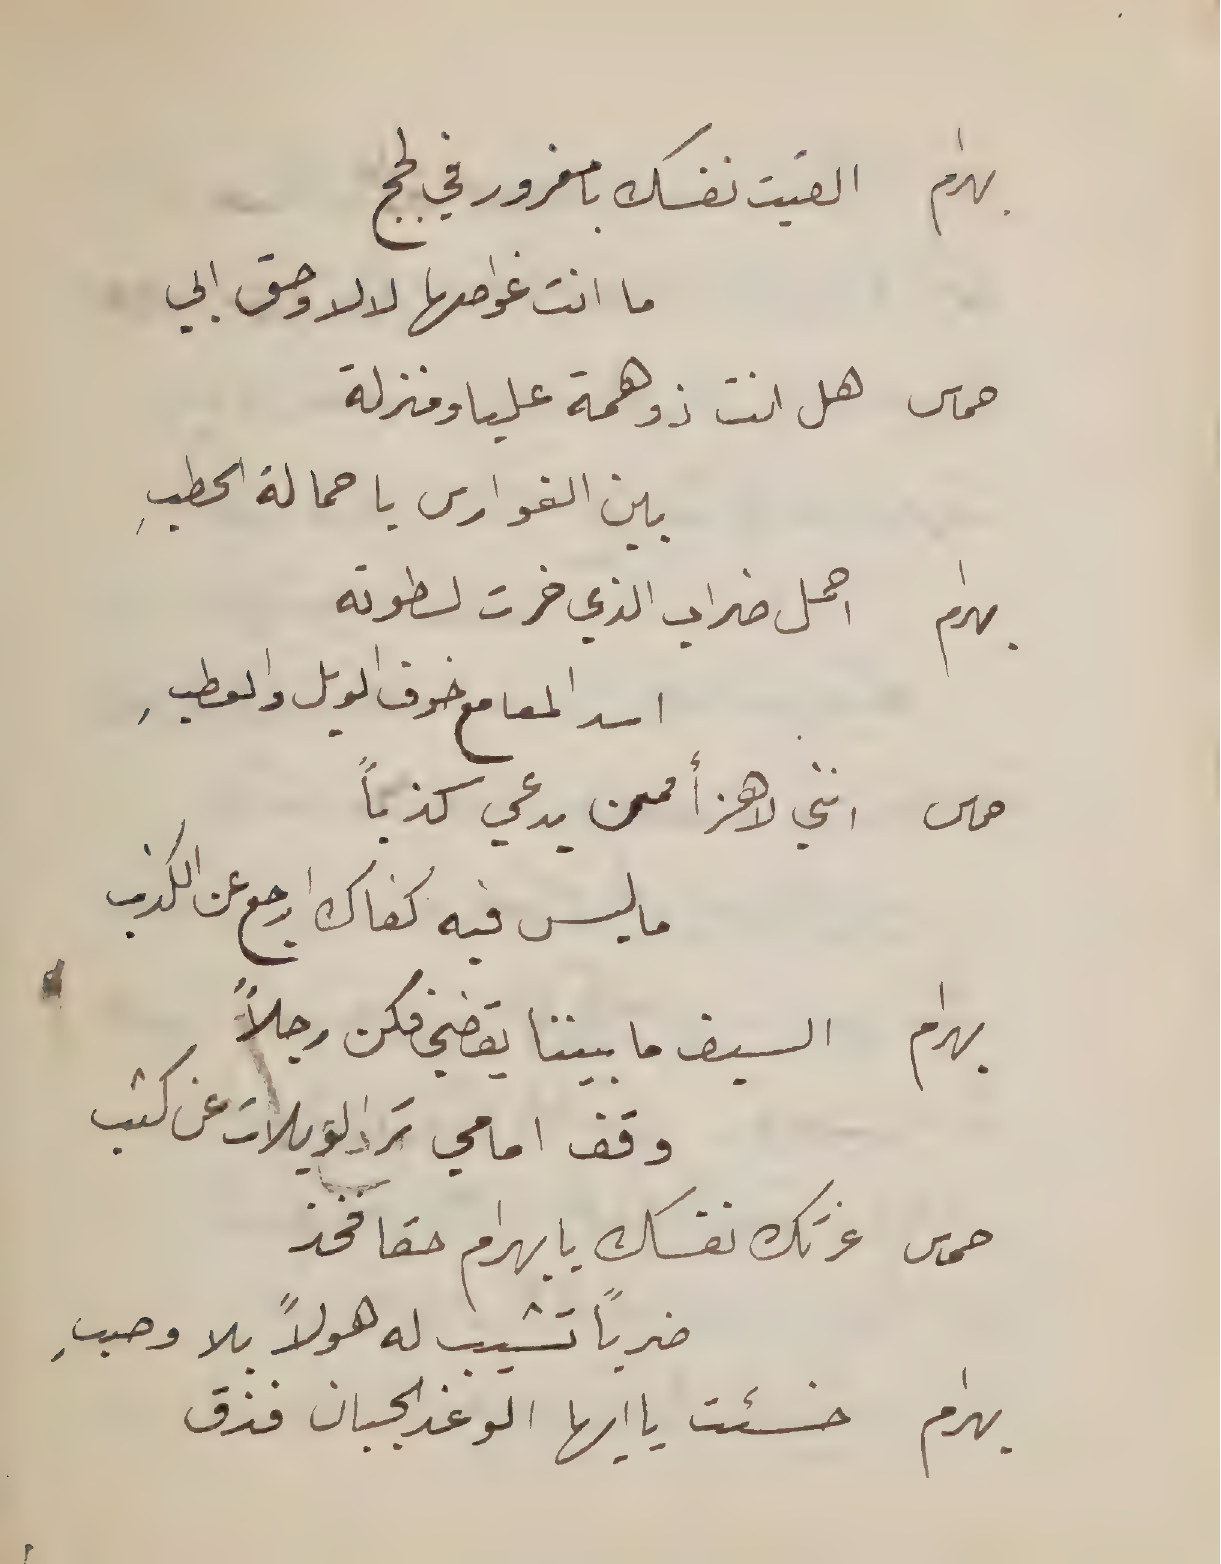 بهرام القيت نفسك يا مغرور في لجج
ما انت غواصها لا لا وحق ابي
حماس هل انت ذو همة عليا ومنزلة
بين الفوارس يا حمالة الحطبِ
بهرام احمل ضراب الذي خرت لسطوته
اسد المعامع خوف الويل والعطبِ
حماس انني لاهزأ ممن يدعي كذباً
ما ليس فيه كفاك ارجع عن الكذب
بهرام السيف ما بيننا يقضي فكن رجلاً
وقف امامي تَرَ الويلات عن كثب
حماس غرتك نفسك يا بهرام حقا فخذ
ضرباً تشيب له هولاً بلا وصبِ
بهرام خسئت يا ايها الوغد الجبان فذق